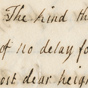 The kind th
of no delay fo
ost dear heigh